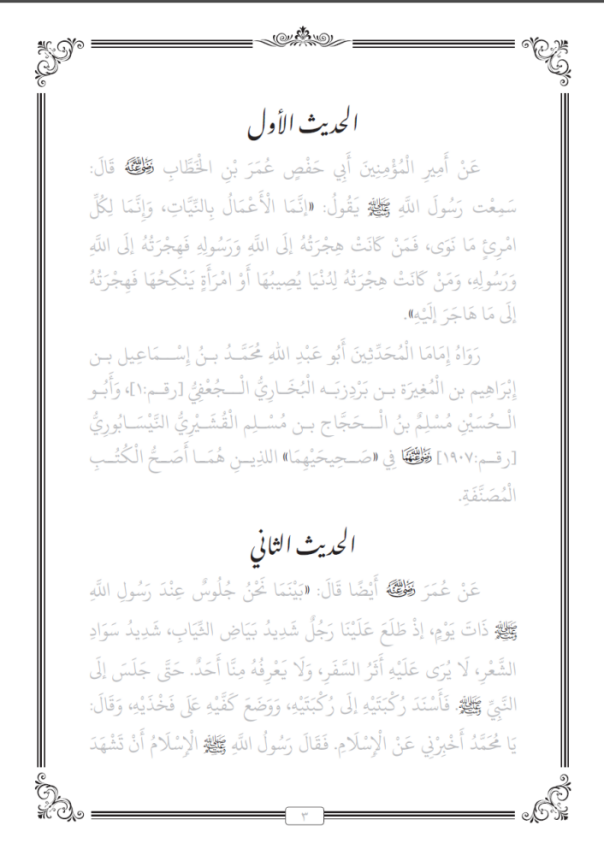 الحديث الأول
عَنْ أَمِيرِ الْمُؤْمِنِينَ أَبِي حَفْصٍ عُمَرَ بْنِ الْخَطَّابِ رضي الله عنه قَالَ:
سَمِعْت رَسُولَ اللَّهِ ﷺ يَقُولُ: «إنَّمَا الْأَعْمَالُ بِالنِّيَّاتِ، وَإِنَّمَا لِكُلِّ
امْرِئٍ مَا نَوَى، فَمَنْ كَانَتْ هِجْرَتُهُ إلَى اللَّهِ وَرَسُولِهِ فَهِجْرَتُهُ إلَى اللَّهِ
وَرَسُولِهِ، وَمَنْ كَانَتْ هِجْرَتُهُ لِدُنْيَا يُصِيبُهَا أَوْ امْرَأَةٍ يَنْكِحُهَا فَهِجْرَتُهُ
إلَى مَا هَاجَرَ إلَيْهِ».
رَوَاهُ إِمَامَا الْمُحَدِّثِينَ أَبُو عَبْدِ اللهِ مُحَمَّدُ بنُ إِسْمَاعِيل بن
إِبْرَاهِيم بن الْمُغِيرَة بن بَرْدِزبَه الْبُخَارِيُّ الْجُعْفِيُّ [رقم:١]، وَأَبُو
الْحُسَيْنِ مُسْلِمٌ بنُ الْحَجَّاج بن مُسْلِم الْقُشَيْرِيُّ النَّيْسَابُورِيُّ
[رقم:١٩٠٧] رضي الله عنهما فِي «صَحِيحَيْهِمَا» اللذِينِ هُمَا أَصَحُّ الْكُتُبِ
الْمُصَنَّفَةِ.
الحديث الثاني
عَنْ عُمَرَ رضي الله عنه أَيْضًا قَالَ: «بَيْنَمَا نَحْنُ جُلُوسٌ عِنْدَ رَسُولِ اللَّهِ
ﷺ ذَاتَ يَوْمٍ، إذْ طَلَعَ عَلَيْنَا رَجُلٌ شَدِيدُ بَيَاضِ الثِّيَابِ، شَدِيدُ سَوَادِ
الشَّعْرِ، لَا يُرَى عَلَيْهِ أَثَرُ السَّفَرِ، وَلَا يَعْرِفُهُ مِنَّا أَحَدٌ. حَتَّى جَلَسَ إلَى
النَّبِيِّ ﷺ. فَأَسْنَدَ رُكْبَتَيْهِ إلَى رُكْبَتَيْهِ، وَوَضَعَ كَفَّيْهِ عَلَى فَخْذَيْهِ، وَقَالَ:
يَا مُحَمَّدُ أَخْبِرْنِي عَنْ الْإِسْلَامِ. فَقَالَ رَسُولُ اللَّهِ ﷺ الْإِسْلَامُ أَنْ تَشْهَدَ
٣